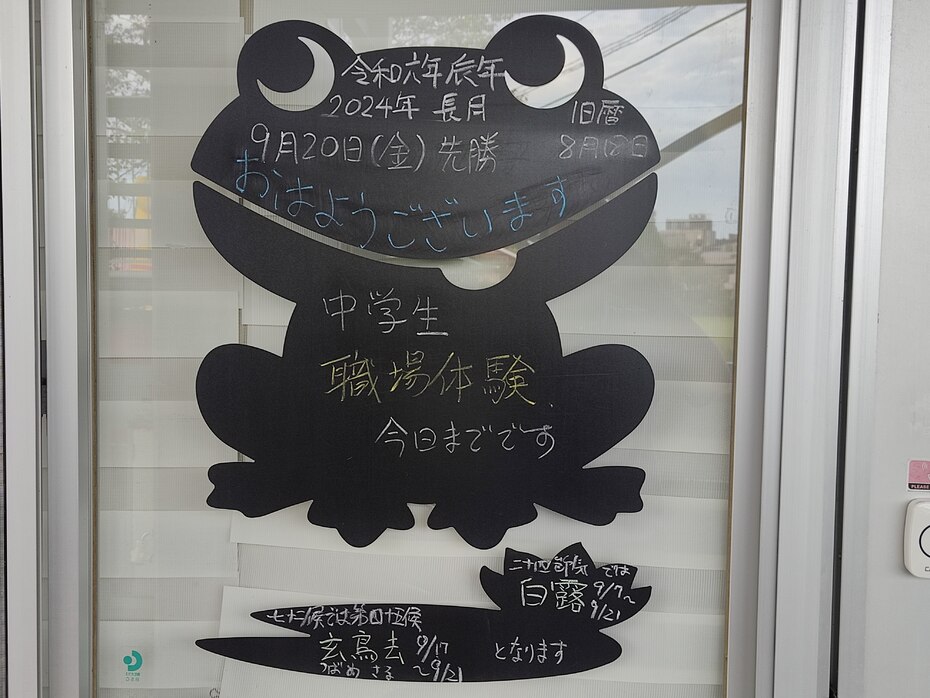 令和六年辰年
2024年 長月
旧暦
9月20日(金)先勝
8月18日
おはようございます
中学生
職場体験
今日までです
二十四節気では
白露 9/7〜
9/21
七十二候では第四十五候
玄鳥去 9/17
つばめ さる 〜9/21
となります
PLEASE